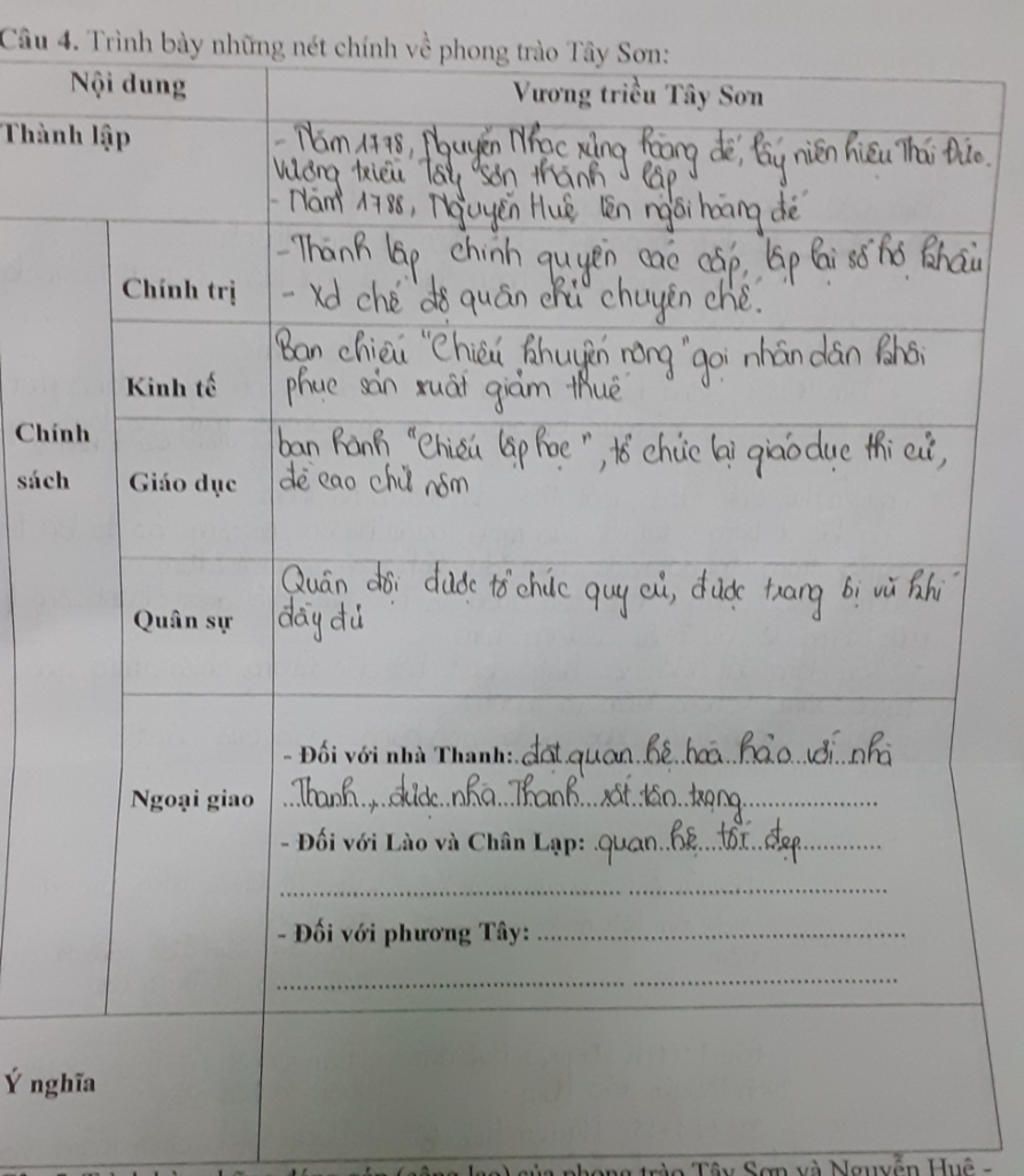 Câu 4. Trình bày những nét chính về phong trào Tây Sơn:
Nội dung
Vương triều Tây Sơn
Thành lập
- Năm 1778, Nguyễn Nhạc xưng hoàng đế, lấy niên hiệu Thái Đức.
Vương triều Tây Sơn thành lập
- Năm 1788, Nguyễn Huệ lên ngôi hoàng đế
Chính sách
Chính trị
- Thành lập chính quyền các cấp, lập lại sổ hộ khẩu
- Xd chế độ quân chủ chuyên chế.
Kinh tế
Ban chiếu "Chiếu khuyến nông" gọi nhân dân khôi
phục sản xuất giảm thuế
Giáo dục
ban hành "Chiếu lập học", tổ chức lại giáo dục thi cử,
đề cao chữ nôm
Quân sự
Quân đội được tổ chức quy củ, được trang bị vũ khí
đầy đủ
Ngoại giao
- Đối với nhà Thanh: đặt quan hệ hoà hảo với nhà
Thanh, được nhà Thanh rất tôn trọng
- Đối với Lào và Chân Lạp: quan hệ tốt đẹp
- Đối với phương Tây:
Ý nghĩa
của phong trào Tây Sơn và Nguyễn Huệ